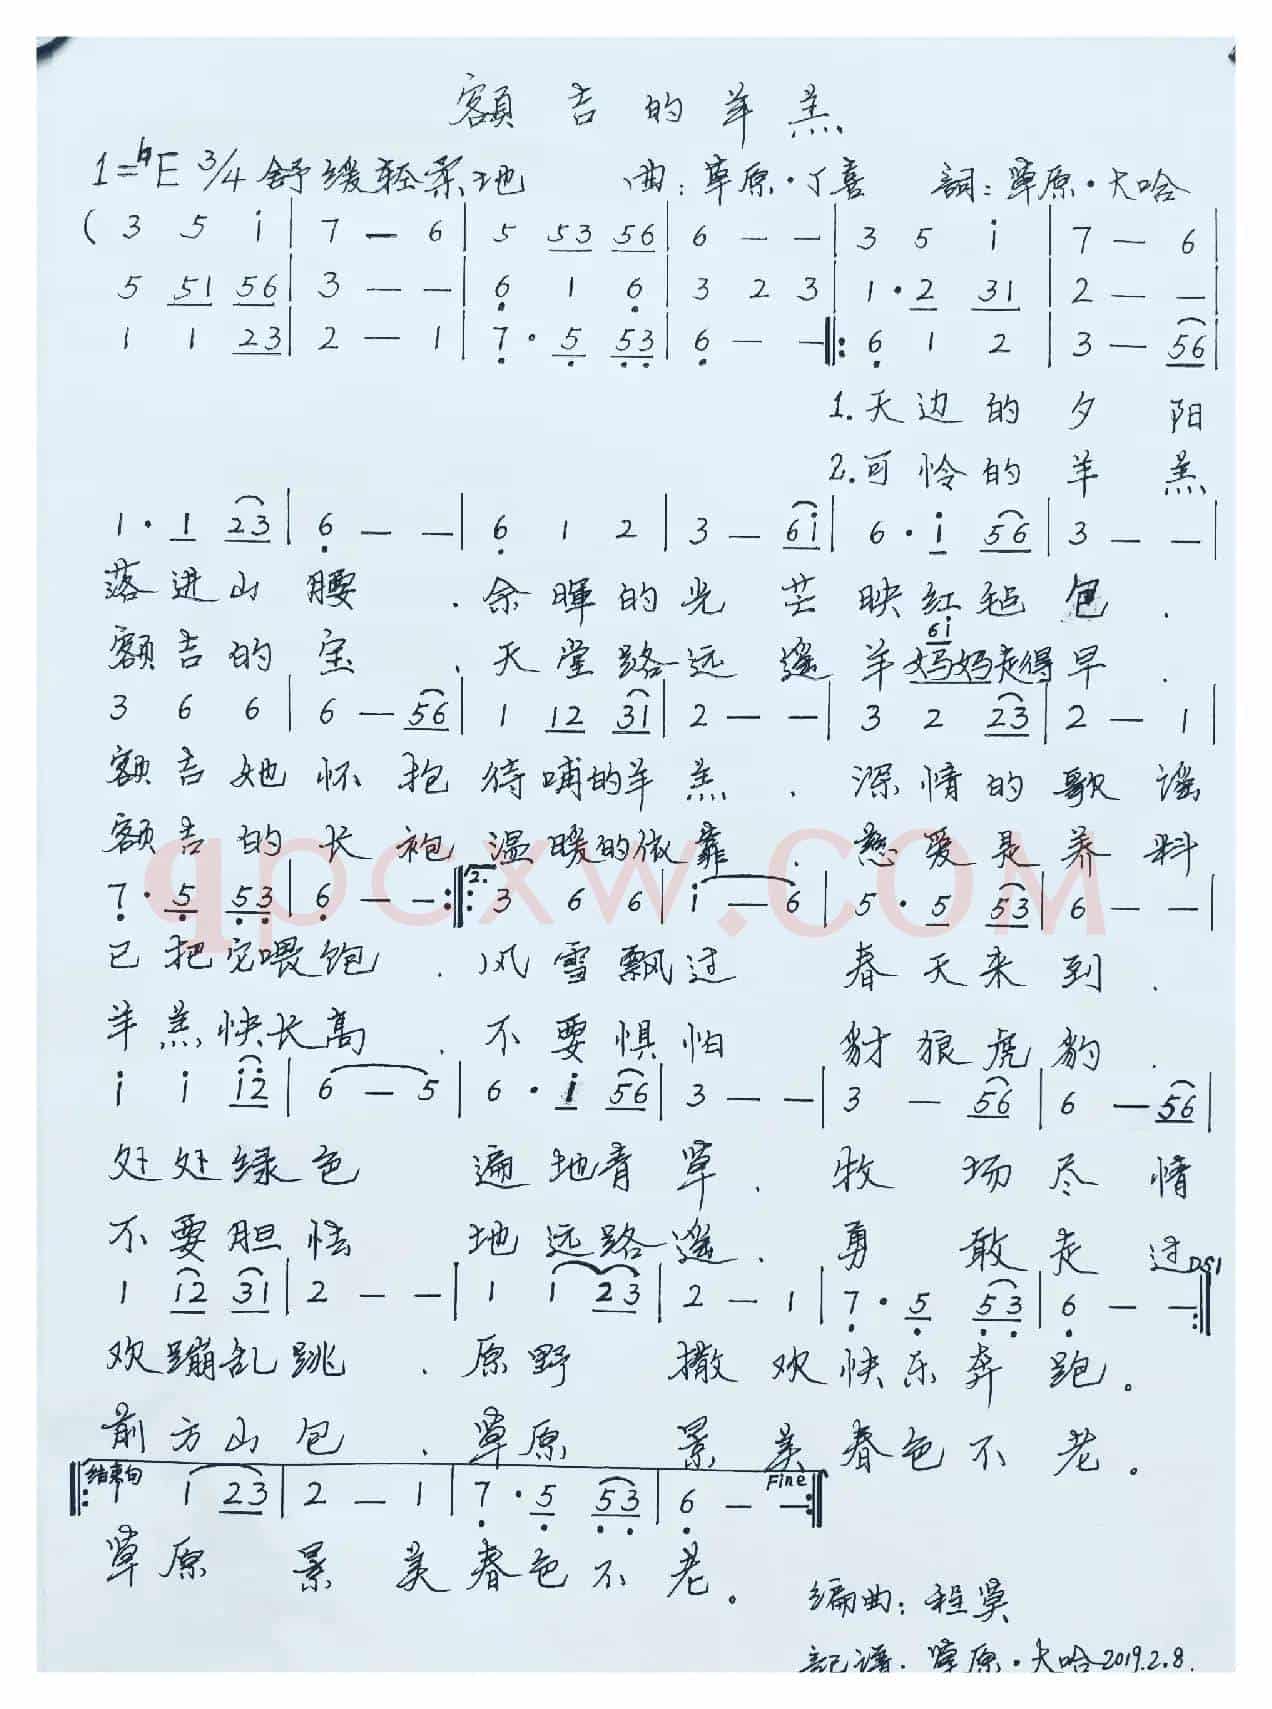 額吉的羊羔
1=♮E 3/4 舒缓轻柔地 曲:草原·丁喜 詞:草原·大哈
( 3 5 i | 7 — 6 | 5 53 56 | 6 — — | 3 5 i | 7 — 6 |
5 51 56 | 3 — — | 6 1 6 | 3 2 3 | 1·2 31 | 2 — — |
1 1 23 | 2 — 1 | 7·5 53 | 6 — — ‖: 6 1 2 | 3 — 56 |
1.天边的夕阳
2.可怜的羊羔
1·1 23 | 6 — — | 6 1 2 | 3 — 6i | 6·i 56 | 3 — — |
落进山腰.余暉的光芒映红毡包.
6i
额吉的宝.天堂路远遥羊妈妈走得早.
3 6 6 | 6 — 56 | 1 12 31 | 2 — — | 3 2 23 | 2 — 1 |
额吉她怀抱待哺的羊羔.深情的歌谣
额吉的长袍温暖的依靠.慈爱是养料
qpcxw.COM
7·5 53 | 6 — — :‖: 2. 3 6 6 | i — 6 | 5·5 53 | 6 — — |
已把它喂饱.风雪飘过 春天来到.
羊羔快长高.不要惧怕 豺狼虎豹.
i i i2 | 6 — 5 | 6·i 56 | 3 — — | 3 — 56 | 6 — 56 |
处处绿色 遍地青草.牧场尽情
不要胆怯 地远路遥.勇敢走过
DS1
1 12 31 | 2 — — | 1 1 23 | 2 — 1 | 7·5 53 | 6 — — :‖
欢蹦乱跳.原野 撒欢快乐奔跑。
前方山包.草原 景美春色不老。
‖: 结束句 1 1 23 | 2 — 1 | 7·5 53 | 6 — — Fine :‖
草原 景美春色不老。
编曲:程昊
記譜.草原·大哈2019.2.8.